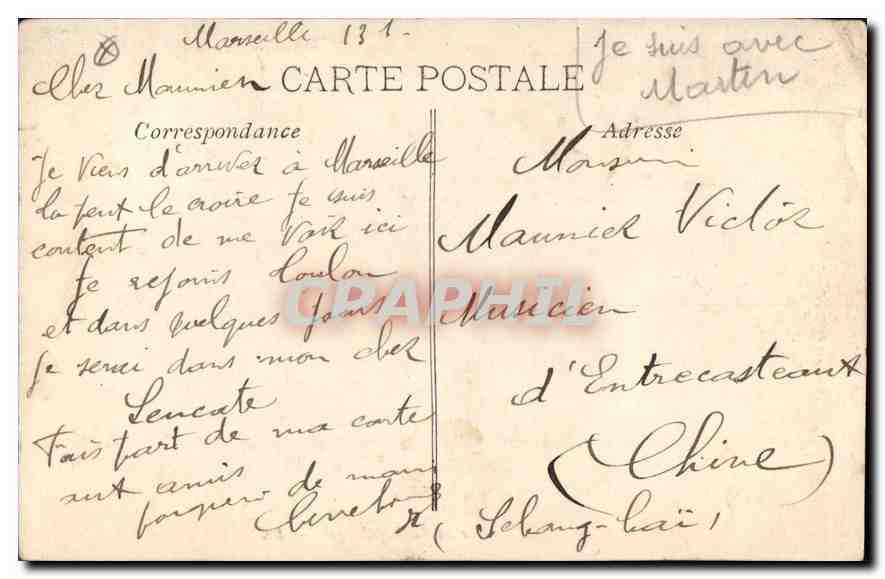 Marseille 13 1.
Cher Maunier
CARTE POSTALE
Je suis avec
Marten
Correspondance
Adresse
Je viens d'arriver à Marseille
tu peut le croire Je suis
content de me voir ici
Je rejoins Toulon
et dans quelques jours
Je serai dans mon cher
Leucate
Fais part de ma carte
aux amis
de
Monsieur
Maunier Victor
Musicien
d'Entrecasteaux
(Chine)
(Schang-haï)
CRAPHIL